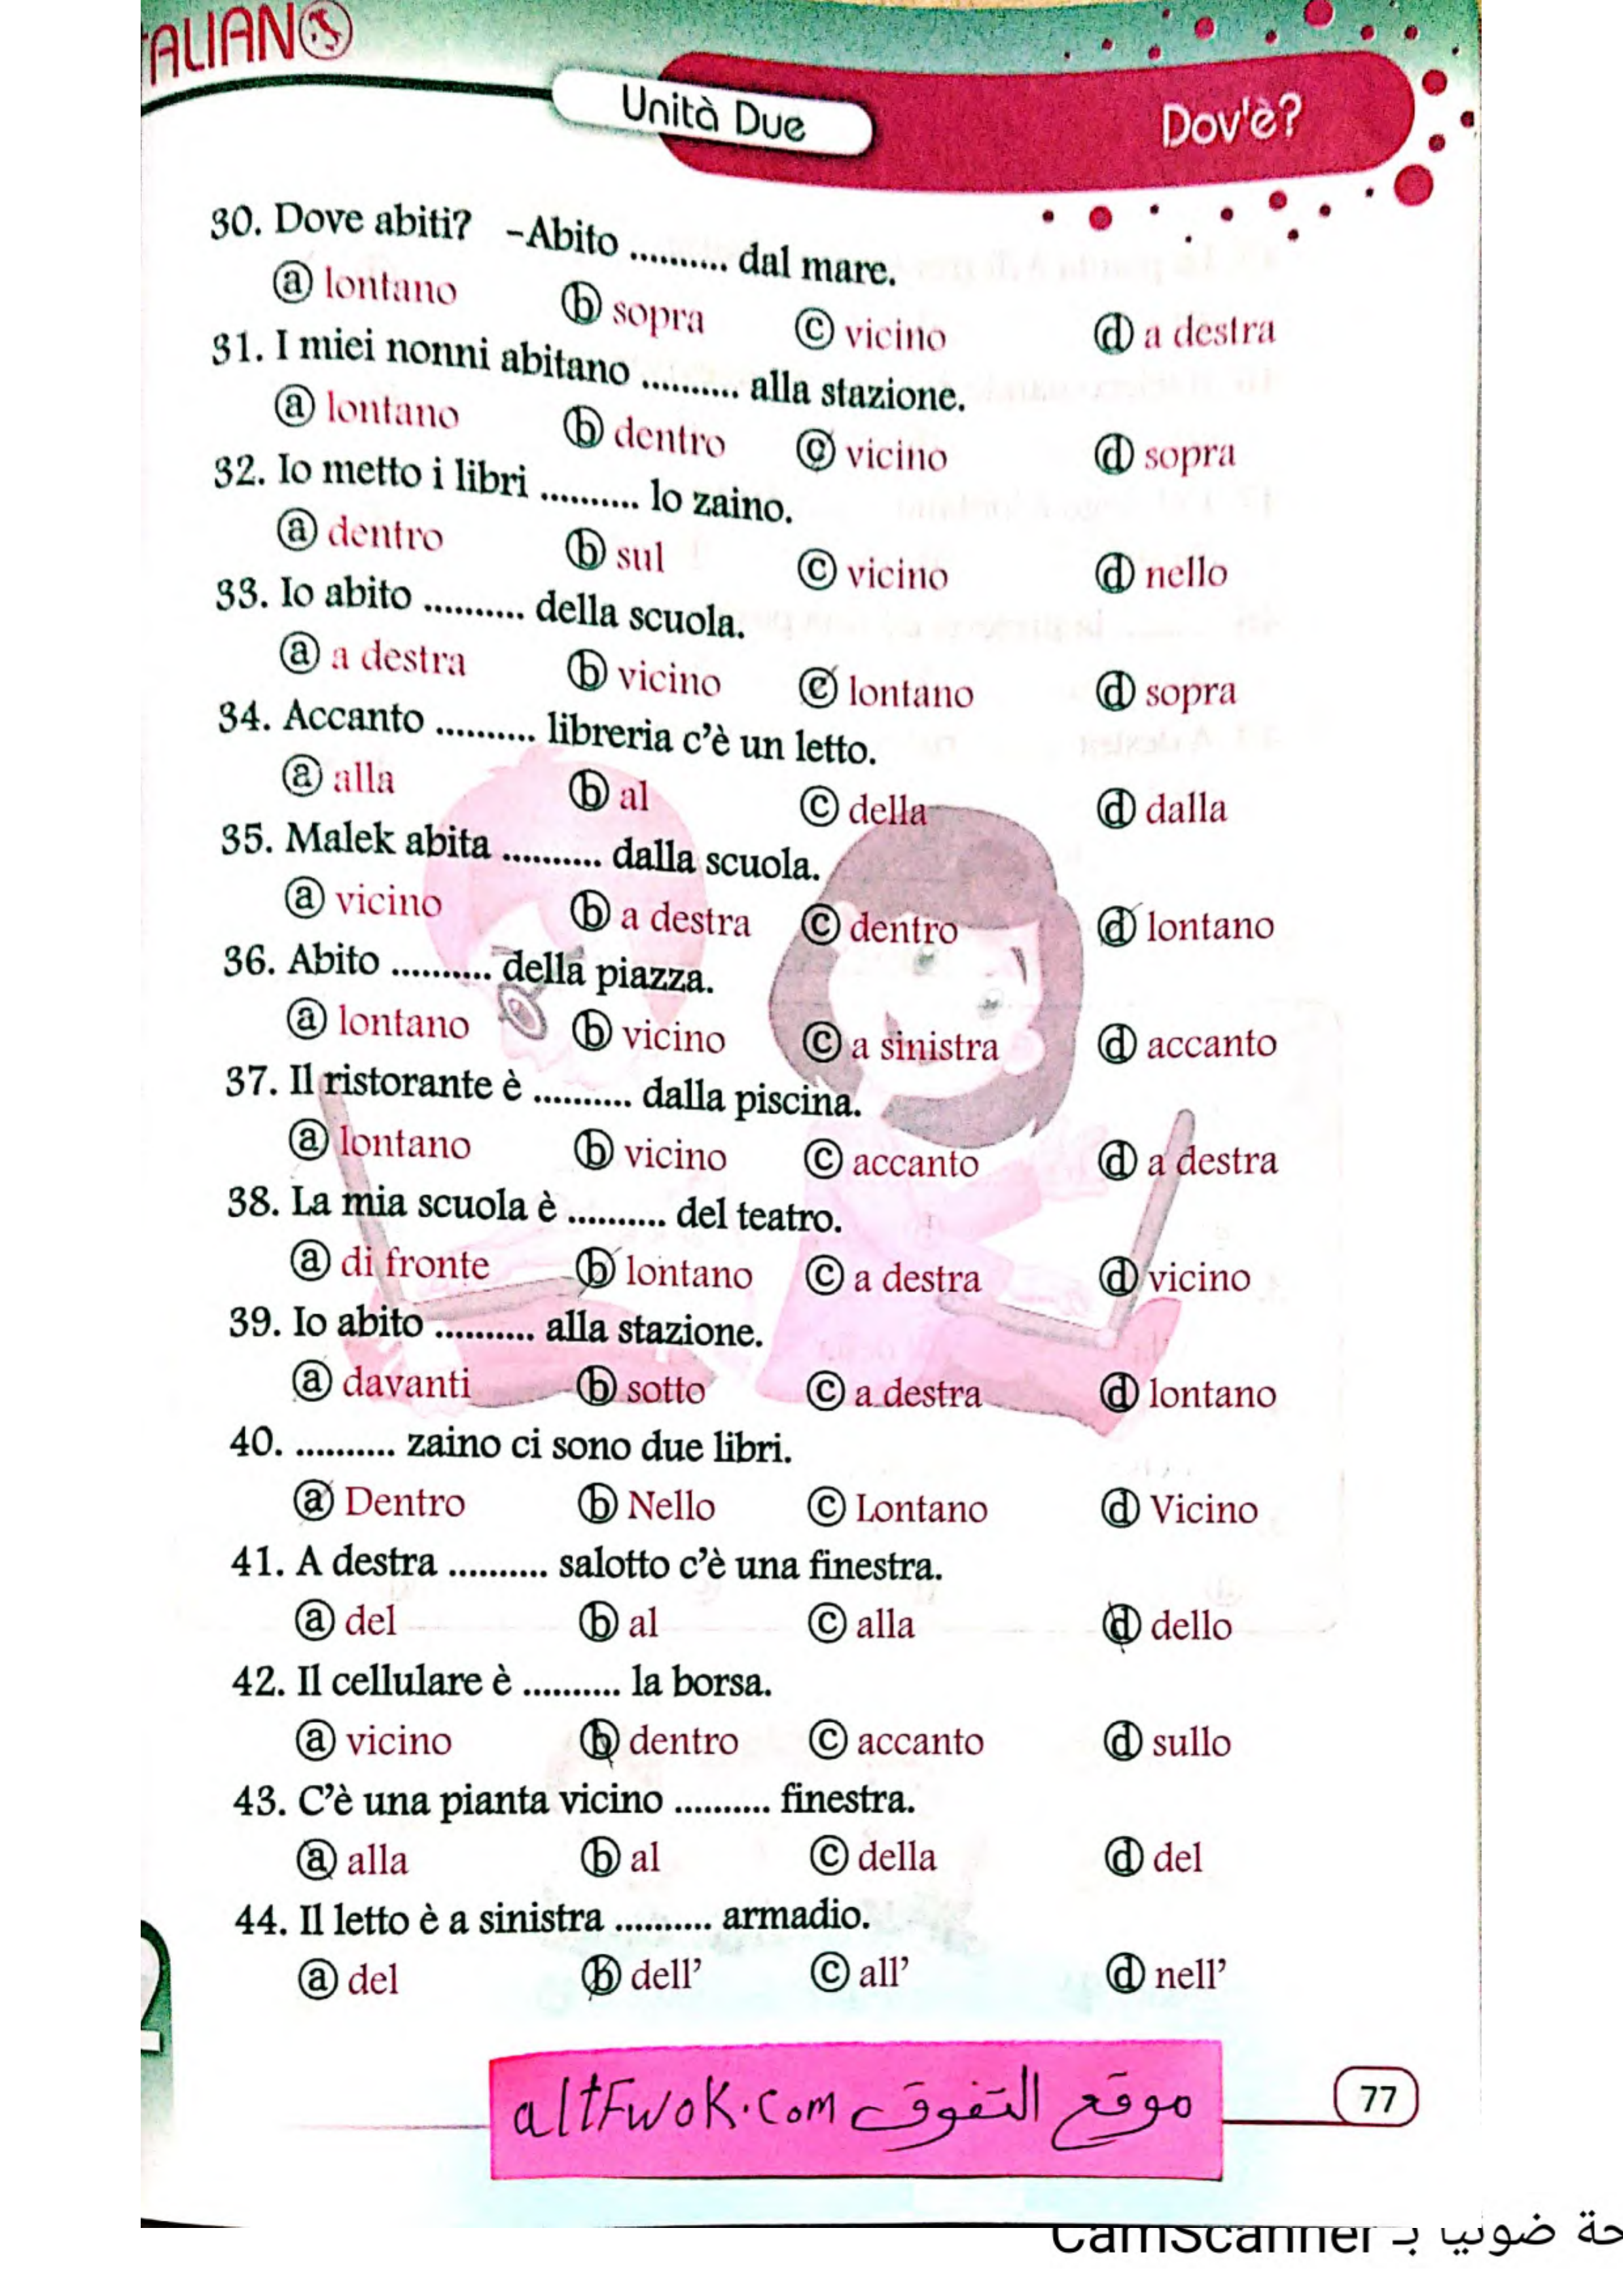 ITALIANO
Unità Due
Dov'è?
30. Dove abiti? -Abito .......... dal mare.
ⓐ lontano ⓑ sopra ⓒ vicino ⓓ a destra
31. I miei nonni abitano .......... alla stazione.
ⓐ lontano ⓑ dentro ⓒ vicino ⓓ sopra
32. Io metto i libri .......... lo zaino.
ⓐ dentro ⓑ sul ⓒ vicino ⓓ nello
33. Io abito .......... della scuola.
ⓐ a destra ⓑ vicino ⓒ lontano ⓓ sopra
34. Accanto .......... libreria c'è un letto.
ⓐ alla ⓑ al ⓒ della ⓓ dalla
35. Malek abita .......... dalla scuola.
ⓐ vicino ⓑ a destra ⓒ dentro ⓓ lontano
36. Abito .......... della piazza.
ⓐ lontano ⓑ vicino ⓒ a sinistra ⓓ accanto
37. Il ristorante è .......... dalla piscina.
ⓐ lontano ⓑ vicino ⓒ accanto ⓓ a destra
38. La mia scuola è .......... del teatro.
ⓐ di fronte ⓑ lontano ⓒ a destra ⓓ vicino
39. Io abito .......... alla stazione.
ⓐ davanti ⓑ sotto ⓒ a destra ⓓ lontano
40. .......... zaino ci sono due libri.
ⓐ Dentro ⓑ Nello ⓒ Lontano ⓓ Vicino
41. A destra .......... salotto c'è una finestra.
ⓐ del ⓑ al ⓒ alla ⓓ dello
42. Il cellulare è .......... la borsa.
ⓐ vicino ⓑ dentro ⓒ accanto ⓓ sullo
43. C'è una pianta vicino .......... finestra.
ⓐ alla ⓑ al ⓒ della ⓓ del
44. Il letto è a sinistra .......... armadio.
ⓐ del ⓑ dell' ⓒ all' ⓓ nell'
موقع التفوق altFwok.com
77
حة ضوئيا بـ CamScanner